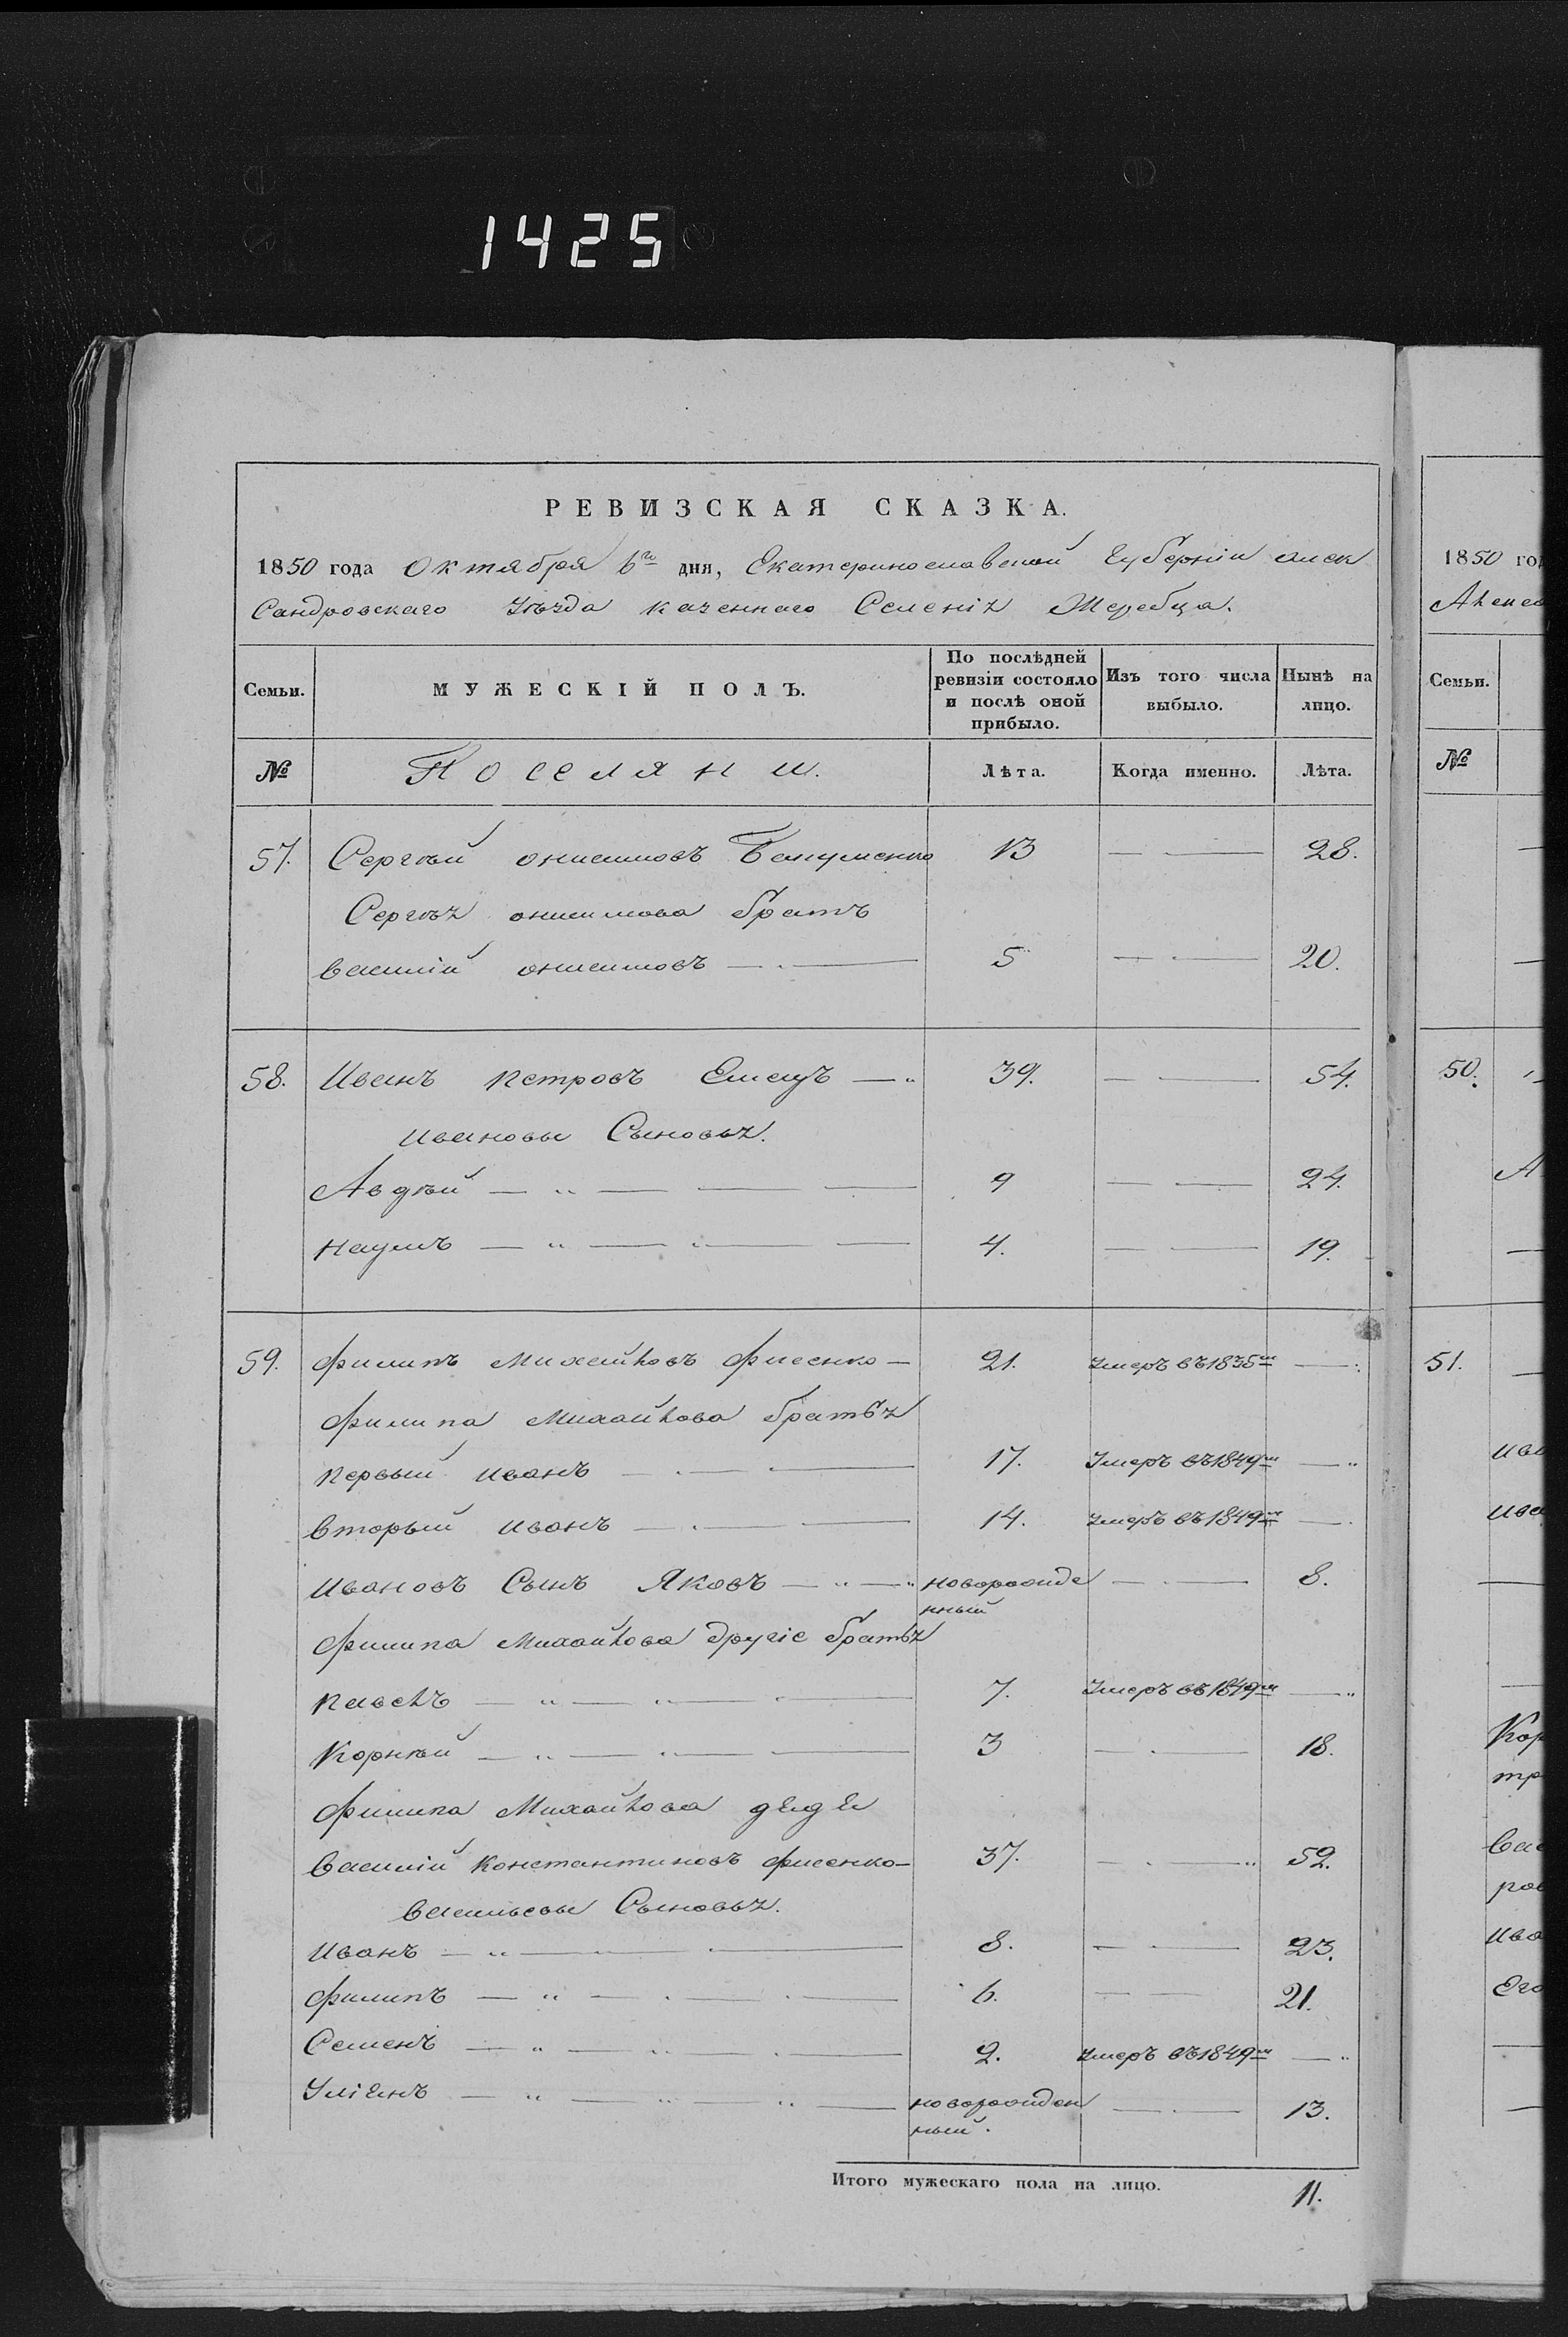 1425
РЕВИЗСКАЯ СКАЗКА.
1850 года Октября 6го дня, Екатеринославской Губерніи Алек
сандровскаго Уѣзда казеннаго Селенія Жеребца.
Семьи. МУЖЕСКІЙ ПОЛЪ. По послѣдней ревизіи состояло и послѣ оной прибыло. Изъ того числа выбыло. Нынѣ на лицо.
№ Поселяни. Лѣта. Когда именно. Лѣта.
57. Сергѣй Онисимовъ 13 — — 28.
Сергѣя Онисимова братъ
Василій Онисимовъ — 5 — — 20.
58. Иванъ Петровъ Емецъ — 39. — — 54.
Ивановы Сыновья.
Авдѣй — 9 — — 24.
Наумъ — 4. — — 19.
59. Филипъ Михайловъ Фисенко — 21. Умеръ въ 1835м —
Филипа Михайлова братья
первый Иванъ — 17. Умеръ въ 1849м —
Вторый Иванъ — 14. Умеръ въ 1849м —
Ивановъ Сынъ Яковъ — новорожде
нный — 8.
Филипа Михайлова другіе братья
Павелъ — 7. Умеръ въ 1849м —
Корнѣй — 3 — 18.
Филипа Михайлова дядя
Василій Константиновъ Фисенко — 37. — 52.
Васильевы Сыновья.
Иванъ — 8. — 23.
Филипъ — 6. — 21.
Семенъ — 2. Умеръ въ 1849м —
Уліянъ — новорожден
ный. — 13.
Итого мужескаго пола на лицо. 11.
1850 год
Алекс
Семьи.
№
50.
А
51.
Ива
Ива
Кор
тр
Вас
ров
Ива
Его